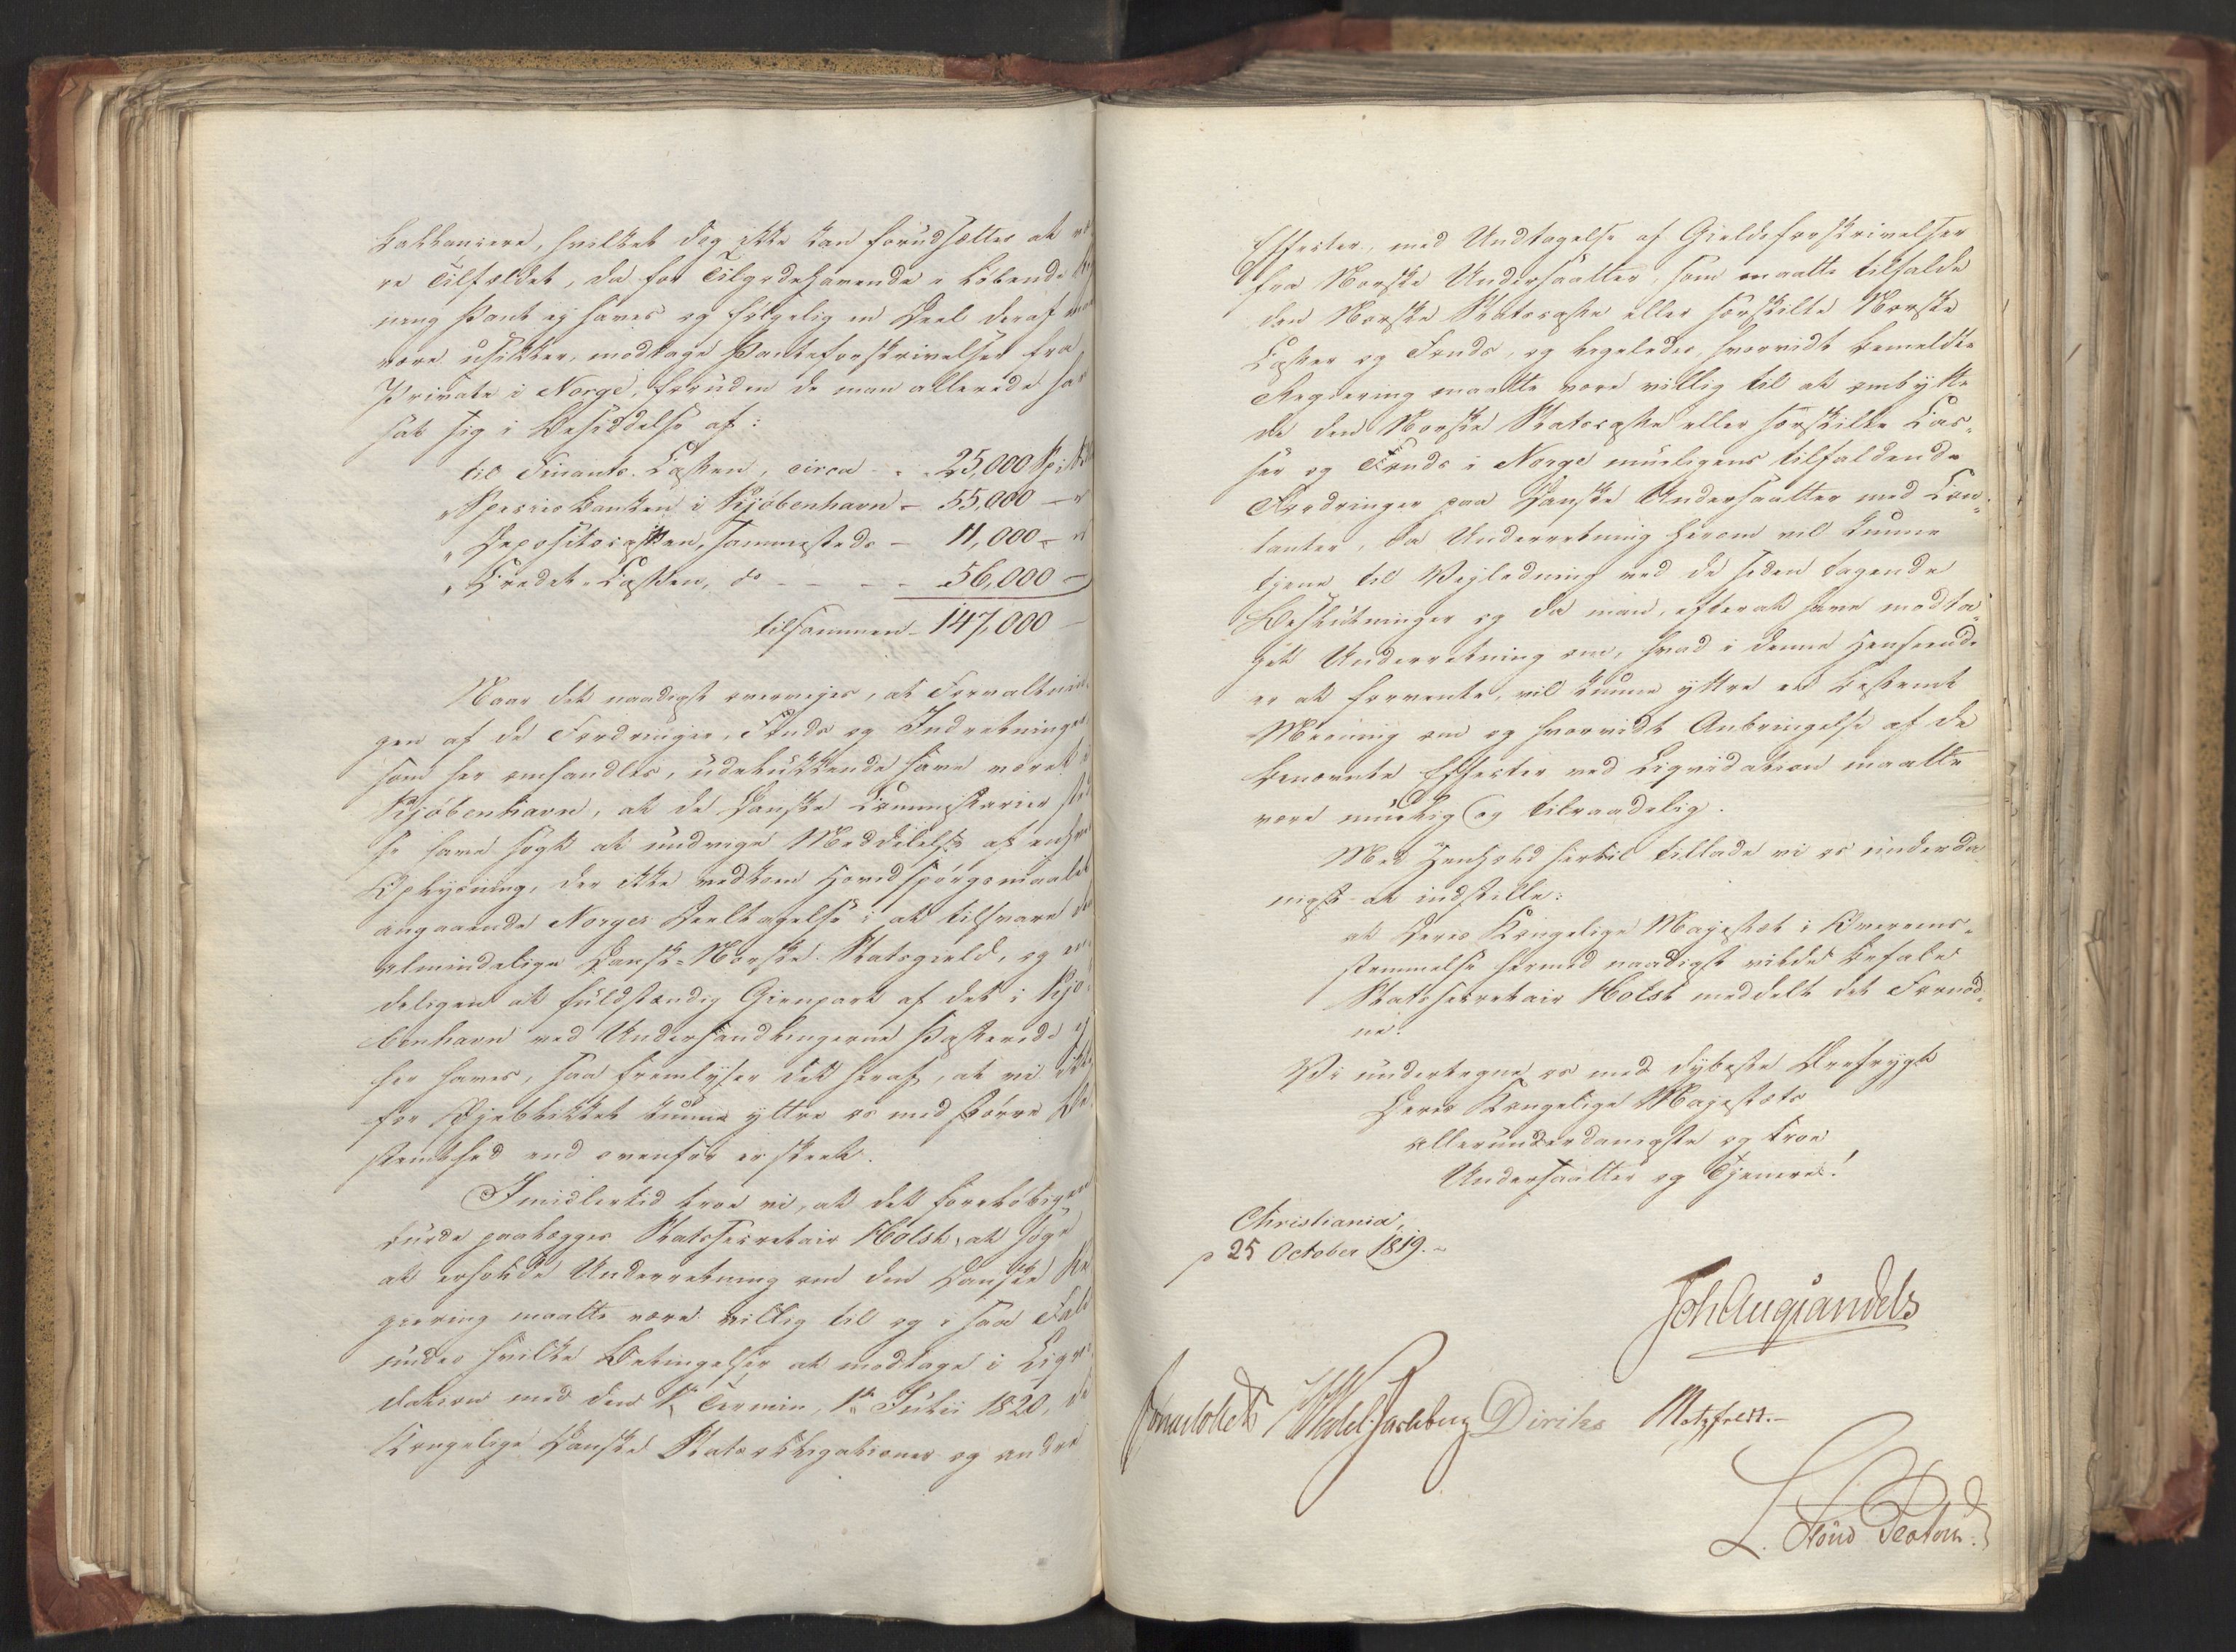 balkancere, hvilket dog ikke kan forudsættes at væ
re Tilfældet, da for Tilgodehavende i løbende
ning Pant ej haves og følgelig en Deel deraf
være usikker, modtage Panteforskrivelser fra
Private i Norge, foruden de man allerede har
sat sig i Besiddelse af:
til Finants-Cassen, circa - - 25,000 Spd
" Speciesbanken i Kjøbenhavn - 55,000 - "
" Depositocassen, sammesteds - 11,000 - "
" Credit-Cassen, do - - - - 56,000 -
tilsammen - 147,000 -
Naar det naadigst overveies, at Forvaltnin-
gen af de Fordringer, Fonds og Indretninger
som her omhandles, udelukkende have været i
Kjøbenhavn, at de Danske Commissarier
se have søgt at undvige Meddelelse af enhver
Oplysning, der ikke vedkom Hovedspørgsmaalet
angaaende Norges Deeltagelse i at tilsvare den
almindelige Dansk-Norske Statsgield, og en-
deligen at fuldstændig Gienpart af det i Kjø-
benhavn ved Underhandlingerne Passerede ej
her haves, saa fremlyser det heraf, at vi ikke
for Øjeblikket kunne yttre os med større Be-
stemthed end ovenfor er skeet.
Imidlertid troe vi, at det foreløbigen
burde paalægges Statssecretair Holst, at søge
at erholde Underretning om den Danske Re
giering maatte være villig til og i saa Fald
under hvilke Betingelser at modtage i Liqvi-
dation med den 1te Termin, 1te Julii 1820, de
Kongelige Danske Statsobligationer og andre
Effecter, med Undtagelse af Gieldsforskrivelser
fra Norske Undersaatter, som maatte tilfalde
den Norske Statscasse eller særskilte Norske
Casser og Fonds, og ligeledes, hvorvidt bemeldte
Regiering maatte være villig til at ombytte
de den Norske Statscasse eller særskilte Cas-
ser og Fonds i Norge mueligens tilfaldende
Fordringer paa Danske Undersaatter med Con-
tanter, da Underretning herom vil kunne
tjene til Vejledning ved de siden tagende
Beslutninger og da man, efter at have modta-
get Underretning om, hvad i denne Henseende
er at forvente, vil kunne yttre en bestemt
Meening om og hvorvidt Anbringelse af de
benævnte Effecter ved Liqvidation maatte
være muelig og tilraadelig.
Med Henhold hertil tillade vi os underda-
nigst at indstille:
at Deres Kongelige Majestæt i Overeens-
stemmelse hermed naadigst vilde befale
Statssecretair Holst meddelt det Fornød-
ne.
Vi undertegne os med dybeste Ærefrygt
Deres Kongelige Majestæts
allerunderdanigste og troe
Undersaatter og Tjenere!
Christiania,
p 25 October 1819.
Joh Aug Sandels
Jonas Collett HWedel Jarlsberg Diriks Motzfeldt.
L. Stoud Platou